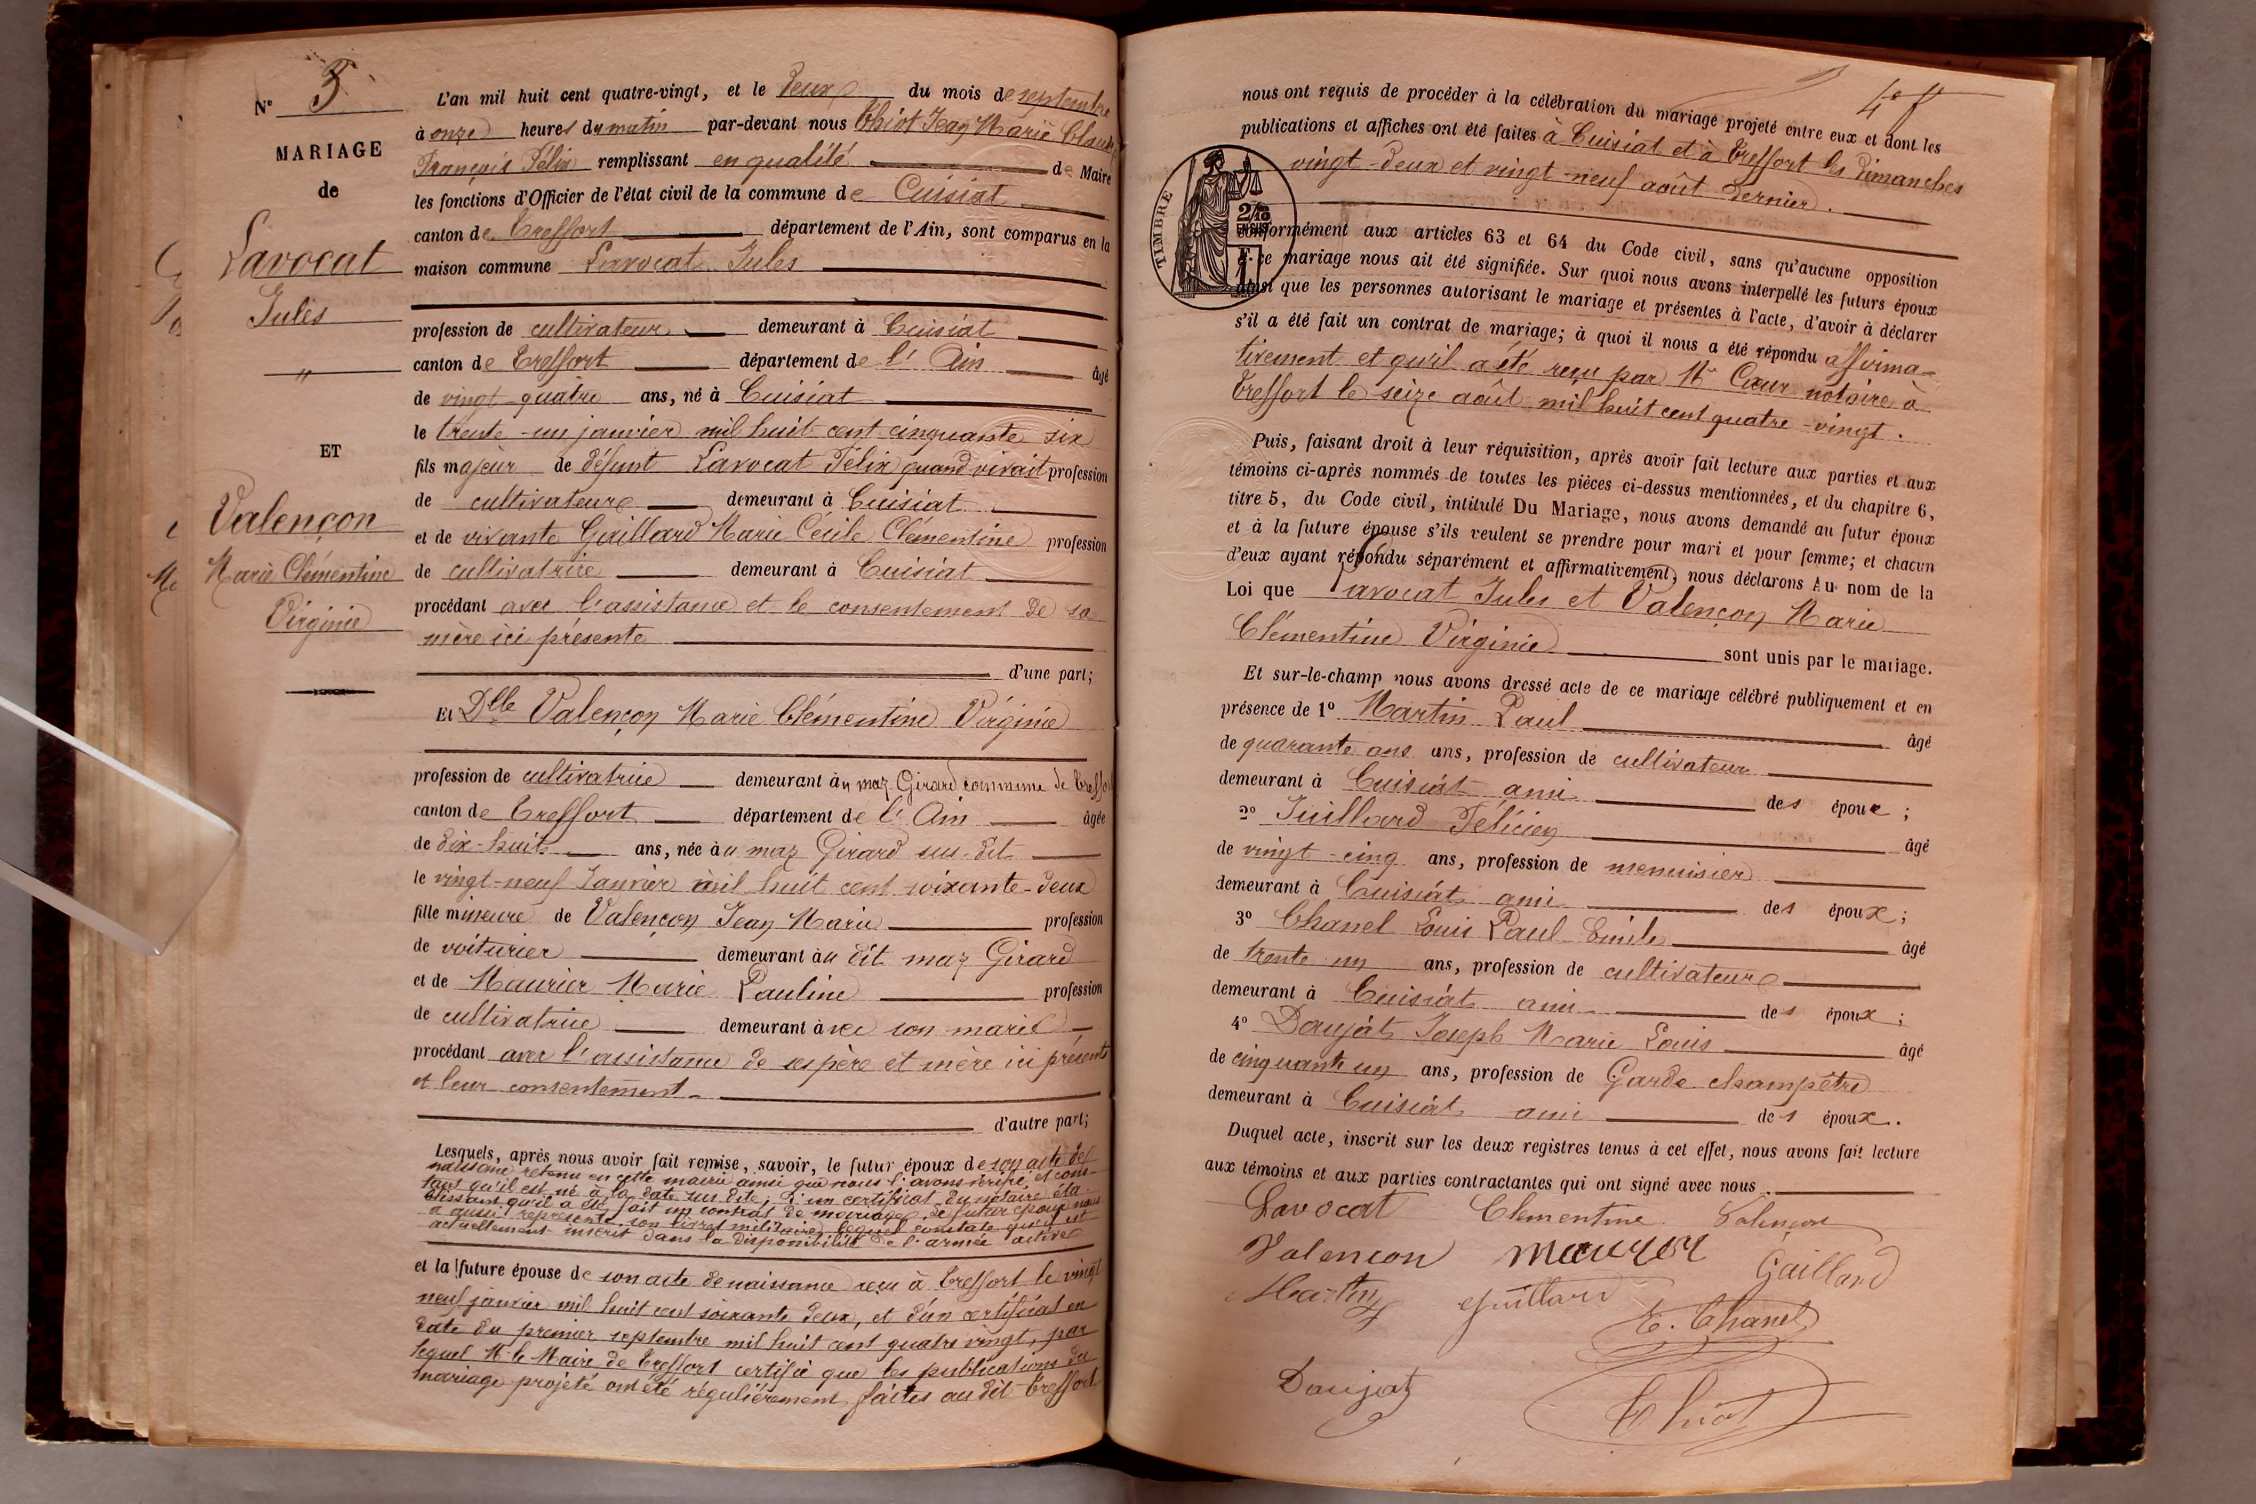 N° 5
MARIAGE
de
Lavocat
Jules
"
ET
Valençon
Marie Clémentine
Virginie
L'an mil huit cent quatre-vingt, et le deux du mois de septembre
à onze heures du matin par-devant nous Chiot Jean Marie Claude
François Félix remplissant en qualité de Maire
les fonctions d'Officier de l'état civil de la commune de Cuisiat
canton de Treffort département de l'Ain, sont comparus en la
maison commune Lavocat Jules
profession de cultivateur demeurant à Cuisiat
canton de Treffort département de l'Ain âgé
de vingt-quatre ans, né à Cuisiat
le trente-un janvier mil huit cent cinquante six
fils majeur de défunt Lavocat Félix quand vivait profession
de cultivateur demeurant à Cuisiat
et de vivante Gaillard Marie Cécile Clémentine profession
de cultivatrice demeurant à Cuisiat
procédant avec l'assistance et le consentement de sa
mère ici présente
d'une part;
Et Dlle Valençon Marie Clémentine Virginie
profession de cultivatrice demeurant au maz Girard commune de Treffort
canton de Treffort département de l'Ain âgée
de dix-huit ans, née au maz Girard sus-dit
le vingt-neuf Janvier mil huit cent soixante-deux
fille mineure de Valençon Jean Marie profession
de voiturier demeurant au dit maz Girard
et de Maurier Marie Pauline profession
de cultivatrice demeurant avec son marie
procédant avec l'assistance de ses père et mère ici présents
et leur consentement.
d'autre part;
Lesquels, après nous avoir fait remise, savoir, le futur époux de son acte de
naissance retenu en cette mairie ainsi que nous l'avons vérifié et cons-
tant qu'il est né à la date sus dite, d'un certificat du notaire éta-
blissant qu'il a été fait un contrat de mariage, le futur époux nous
a aussi représenté son livret militaire lequel constate qu'il est
actuellement inscrit dans la disponibilité de l'armée active
et la future épouse de son acte de naissance reçu à Treffort le vingt
neuf janvier mil huit cent soixante deux, et d'un certificat en
date du premier septembre mil huit cent quatre vingt, par
lequel Mr le Maire de Treffort certifie que les publications du
mariage projeté ont été régulièrement faites au dit Treffort
nous ont requis de procéder à la célébration du mariage projeté entre eux et dont les
publications et affiches ont été faites à Cuisiat et à Treffort les dimanches
vingt-deux et vingt-neuf août dernier.
TIMBRE
conformément aux articles 63 et 64 du Code civil, sans qu'aucune opposition
à ce mariage nous ait été signifiée. Sur quoi nous avons interpellé les futurs époux
ainsi que les personnes autorisant le mariage et présentes à l'acte, d'avoir à déclarer
s'il a été fait un contrat de mariage; à quoi il nous a été répondu affirma-
tivement et qu'il a été reçu par Me Cœur notaire à
Treffort le seize août mil huit cent quatre-vingt.
Puis, faisant droit à leur réquisition, après avoir fait lecture aux parties et aux
témoins ci-après nommés de toutes les pièces ci-dessus mentionnées, et du chapitre 6,
titre 5, du Code civil, intitulé Du Mariage, nous avons demandé au futur époux
et à la future épouse s'ils veulent se prendre pour mari et pour femme; et chacun
d'eux ayant répondu séparément et affirmativement, nous déclarons Au nom de la
Loi que Lavocat Jules et Valençon Marie
Clémentine Virginie sont unis par le mariage.
Et sur-le-champ nous avons dressé acte de ce mariage célébré publiquement et en
présence de 1° Martin Paul âgé
de quarante ans ans, profession de cultivateur
demeurant à Cuisiat ami des époux;
2° Juillard Félicien âgé
de vingt-cinq ans, profession de menuisier
demeurant à Cuisiat ami des époux;
3° Chanel Louis Paul Emile âgé
de trente un ans, profession de cultivateur
demeurant à Cuisiat ami des époux;
4° Daujat Joseph Marie Louis âgé
de cinquante un ans, profession de Garde champêtre
demeurant à Cuisiat ami des époux.
Duquel acte, inscrit sur les deux registres tenus à cet effet, nous avons fait lecture
aux témoins et aux parties contractantes qui ont signé avec nous.
Lavocat Clementine Valençon
Valencon Gaillard
Martin Juillard E. Chanel
Daujat Chiot